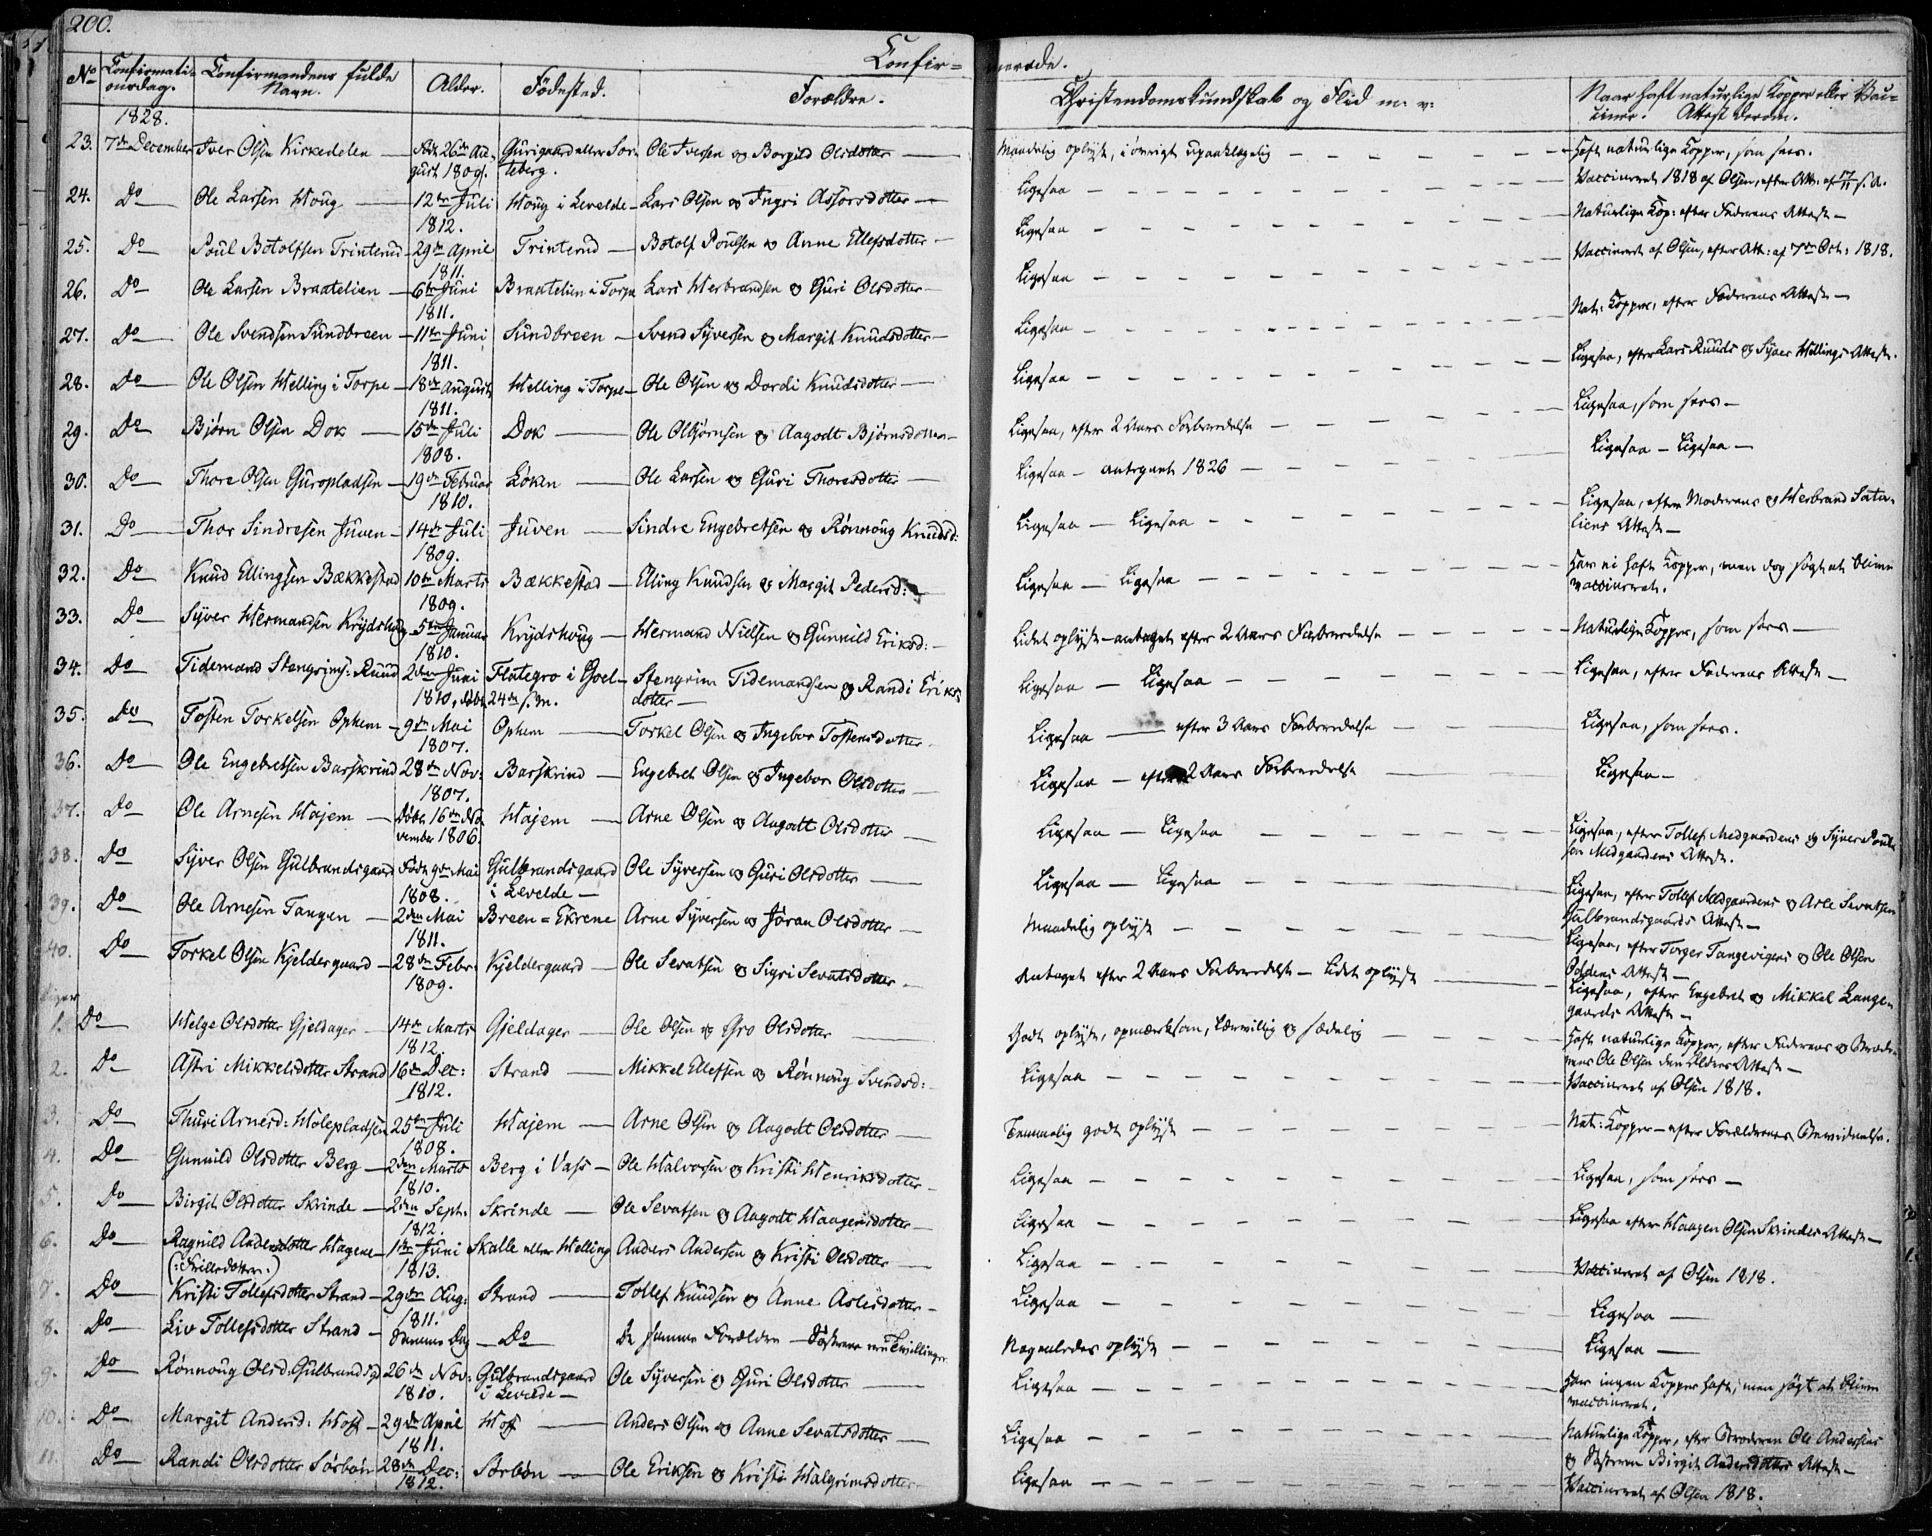 200.
Confir= merede.
No Confirmati- Confirmandens fulde Alder. Födested. Forældre. Christendomskundskab og Flid m: v: Naar haft naturlige Kopper eller Vac-
onsdag. Navn. cineret. Attest derom.
1828.
23. 7de December Iver Olsen Kirkedelen — 26de Au- Gurigaard eller Sor- Ole Iversen og Borgild Olsdotter — Maadelig oplyst, i övrigt upaaklagelig — Haft naturlige Kopper, som sees.
gust 1809. teberg.
24. Do — Ole Larsen Houg — 12te Juli Houg i Levelde — Lars Olsen og Ingri Assorsdotter — Ligesaa — Vaccineret 1818 af Olsen, efter Att: af
1812.
25. Do — Poul Botolfsen Trinterud — 29de April Trinterud — Botolf Poulsen og Anne Ellefsdotter — Ligesaa — Naturlige Kop: efter Faderens Attest —
1811.
26. Do — Ole Larsen Braatelien — 6te Juni Braatelien i Torpe Lars Herbrandsen og Guri Olsdotter — Ligesaa — Vaccineret af Olsen, efter Att: af 7de Oct: 1818.
1811.
27. Do — Ole Svendsen Sundbreen — 11te Juni Sundbreen — Svend Syversen og Margit Knudsdotter — Ligesaa — Nat: Kopper, efter Faderens Attest —
1811.
28. Do — Ole Olsen Helling i Torpe — 18de August Helling i Torpe — Ole Olsen og Dordi Knudsdotter — Ligesaa — Ligesaa, efter Lars Ruuds og Syver Hellings Attest.
1811.
29. Do — Björn Olsen Dok — 15de Juli Dok — Ole Olbjörnsen og Aagodt Björnsdotter — Ligesaa, efter 2 Aars Forberedelse — Ligesaa, som sees —
1808.
30. Do — Thore Olsen Guropladsen — 19de Februar Löken — Ole Larsen og Guri Thoresdotter — Ligesaa — antegnet 1826 — Ligesaa — Ligesaa —
1810.
31. Do — Thor Sindresen Juven — 14de Juli Juven — Sindre Engebretsen og Rönnoug Knudsd: Ligesaa — Ligesaa — Ligesaa, efter Moderens og Herbrand Sata-
1809. liens Attest —
32. Do — Knud Ellingsen Bækkestad 10de Marts Bækkestad — Elling Knudsen og Margit Pedersd: — Ligesaa — Ligesaa — Har ei haft Kopper, men dog sögt at blive
1809. vaccineret.
33. Do — Syver Hermandsen Krydshoug 5te Januar Krydshoug — Hermand Nielsen og Gunnild Eriksd: — Lidet oplyst — antaget efter 2 Aars Forberedelse — Naturlige Kopper, som sees —
1810.
34. Do — Tidemand Stengrims: Ruud 2den Juni Flategro i Goel — Stengrim Tidemandsen og Randi Eriks Ligesaa — Ligesaa — Ligesaa, efter Faderens Attest —
1810, döbt 24de s. M. dotter —
35. Do — Tosten Torkelsen Ophem — 9de Mai Ophem — Torkel Olsen og Ingebor Tostensdotter — Ligesaa — efter 3 Aars Forberedelse — Ligesaa, som sees.
1807.
36. Do — Ole Engebretsen Barskrind 28de Nov: Barskrind — Engebret Olsen og Ingebor Olsdotter — Ligesaa — efter 2 Aars Forberedelse — Ligesaa —
1807.
37. Do — Ole Arnesen Hajem — Döbt 16de No Hajem — Arne Olsen og Aagodt Olsdotter — Ligesaa — Ligesaa — Ligesaa, efter Tollef Medgaardens og Syver Poul-
vember 1806. sen Medgaardens Attest.
38. Do — Syver Olsen Gulbrandsgaard Födt 9de Mai Gulbrandsgaard Ole Syversen og Guri Olsdotter — Ligesaa — Ligesaa — Ligesaa, efter Tollef Medgaardens og Asle Sevatsen
1808. i Levelde — Gulbrandsgaards Attest —
39. Do — Ole Arnesen Tangen — 2den Mai Breen = Ekrene Arne Syversen og Jöran Olsdotter — Maadelig oplyst — Ligesaa, efter Torger Tangevigens og Ole Olsen
1811. Attest —
40. Do — Torkel Olsen Kjeldergaard — 28de Febr: Kjeldergaard — Ole Sevatsen og Sigri Sevatsdotter — Antaget efter 2 Aars Forberedelse — Lidet oplyst — Ligesaa, efter Engebret og Mikkel Lange-
1809. gaards Attest —
Piger
1. Do — Helge Olsdotter Gjeldager — 14de Marts Gjeldager — Ole Olsen og Gro Olsdotter — Godt oplyst, opmærksom, lærvillig og sædelig — Haft naturlige Kopper, efter Faderens og Brode-
1812. rens Ole Olsen den Ældres Attest —
2. Do — Astri Mikkelsdotter Strand 16de Dec: Strand — Mikkel Ellefsen og Rönnoug Svendsd: Ligesaa — Vaccineret af Olsen 1818.
1812.
3. Do — Thuri Arnesd: Holepladsen 25de Juli Hajem — Arne Olsen og Aagodt Olsdotter — Temmelig godt oplyst — Nat: Kopper — efter Forældrenes Bevidnelse.
1808.
4. Do — Gunnild Olsdotter Berg — 2den Marts Berg i Vass — Ole Halvorsen og Kristi Henriksdotter — Ligesaa — Ligesaa, som sees —
1810.
5. Do — Birgit Olsdotter Skrinde — 2den Sept: Skrinde — Ole Sevatsen og Aagodt Haagensdotter — Ligesaa — Ligesaa efter Haagen Olsen Skrindes Attest —
1812.
6. Do — Ragnild Andersdotter Hagene — 1ste Juni Skalle eller Helling Anders Andersen og Kristi Olsdotter — Ligesaa — Vaccineret af Olsen 1818.
1813.
7. Do — Kristi Tollefsdotter Strand — 29de Aug: Strand — Tollef Knudsen og Anne Aslesdotter — Ligesaa — Ligesaa —
1811.
8. Do — Liv Tollefsdotter Strand — Samme Dag — Do — De samme Forældre — Söstrene ere Tvillinger Nogenledes oplyst — Ligesaa —
9. Do — Rönnoug Olsd: Gulbrandsg 26de Nov: Gulbrandsgaard Ole Syversen og Guri Olsdotter — Ligesaa — Har ingen Kopper haft, men sögt at blive
1810. i Levelde — vaccineret.
10. Do — Margit Andersd: Hoff — 29de April Hoff — Anders Olsen og Anne Sevatsdotter — Ligesaa — Naturlige Kopper, efter Broderen Ole Andersens
1811. og Söstrene Birgit Andersdotters Attest —
11. Do — Randi Olsdotter Sörbön 28de Dec: Sörbön — Ole Eriksen og Kristi Halgrimsdotter — Ligesaa — Vaccineret af Olsen 1818.
1812.